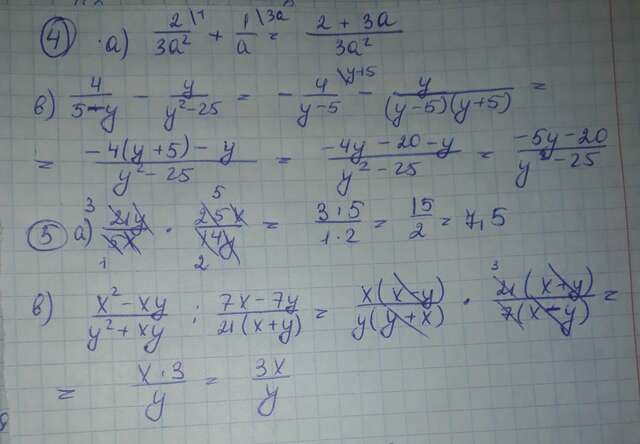 ④ a) 2\1/3a² + 1\3a/a = (2 + 3a)/3a²
в) 4/(5-y) - y/(y²-25) = - 4\y+5/(y-5) - y/((y-5)(y+5)) =
= (-4(y+5) - y)/(y²-25) = (-4y - 20 - y)/(y² - 25) = (-5y - 20)/(y² - 25)
⑤ a) 3 21y/5x 1 · 5 25x/14y 2 = 3·5/1·2 = 15/2 = 7,5
в) (x² - xy)/(y² + xy) : (7x - 7y)/(21(x+y)) = x(x-y)/y(y+x) · 3 21(x+y)/7(x-y) =
= x·3/y = 3x/y